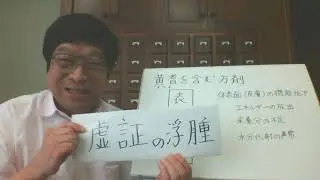 黄耆を含む方剤
表
体表面(皮膚)の機能低下
エネルギーの放出
栄養分の不足
水分代謝の異常
虚証の浮腫